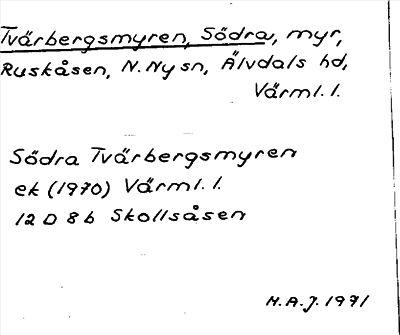 Tvärbergsmyren, Södra, myr,
Ruskåsen, N. Ny sn, Älvdals hd,
Värml. l.
Södra Tvärbergsmyren
ek (1970) Värml. l.
12 D 8 b Skollsåsen
H.A.J. 1971